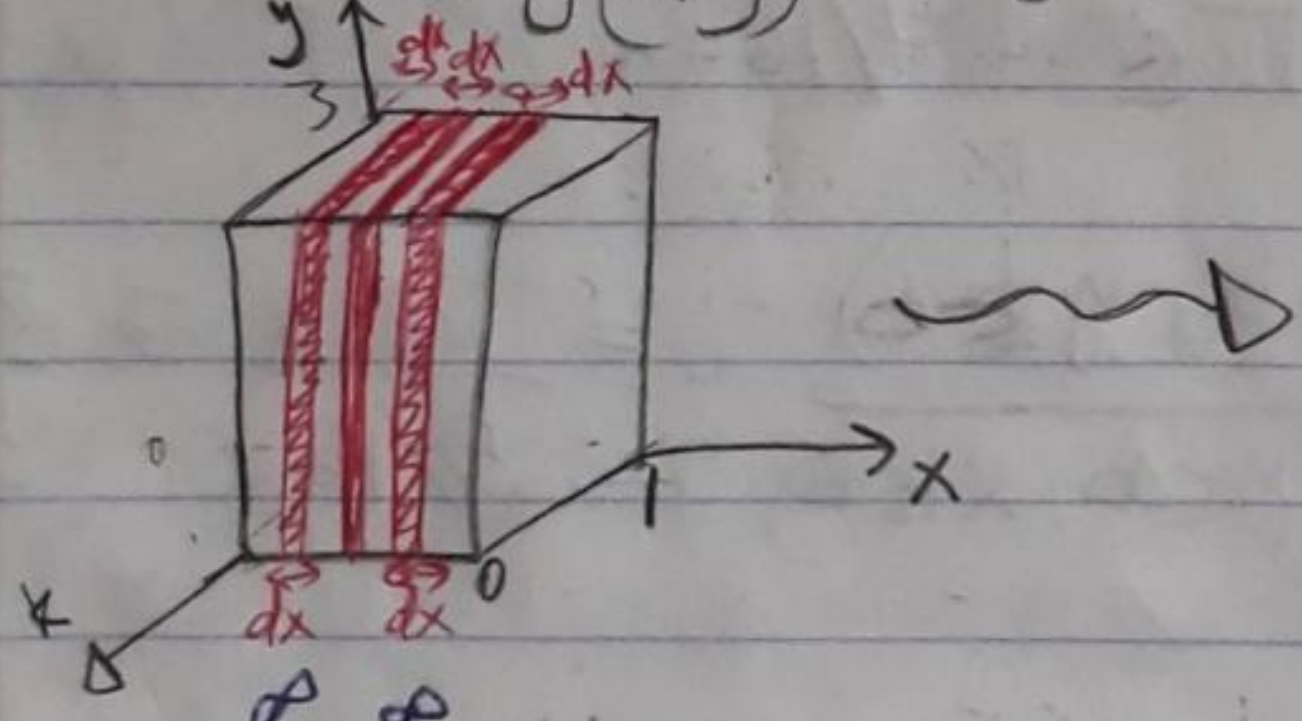 y
dx dx dx
3
x
1
0
dx dx